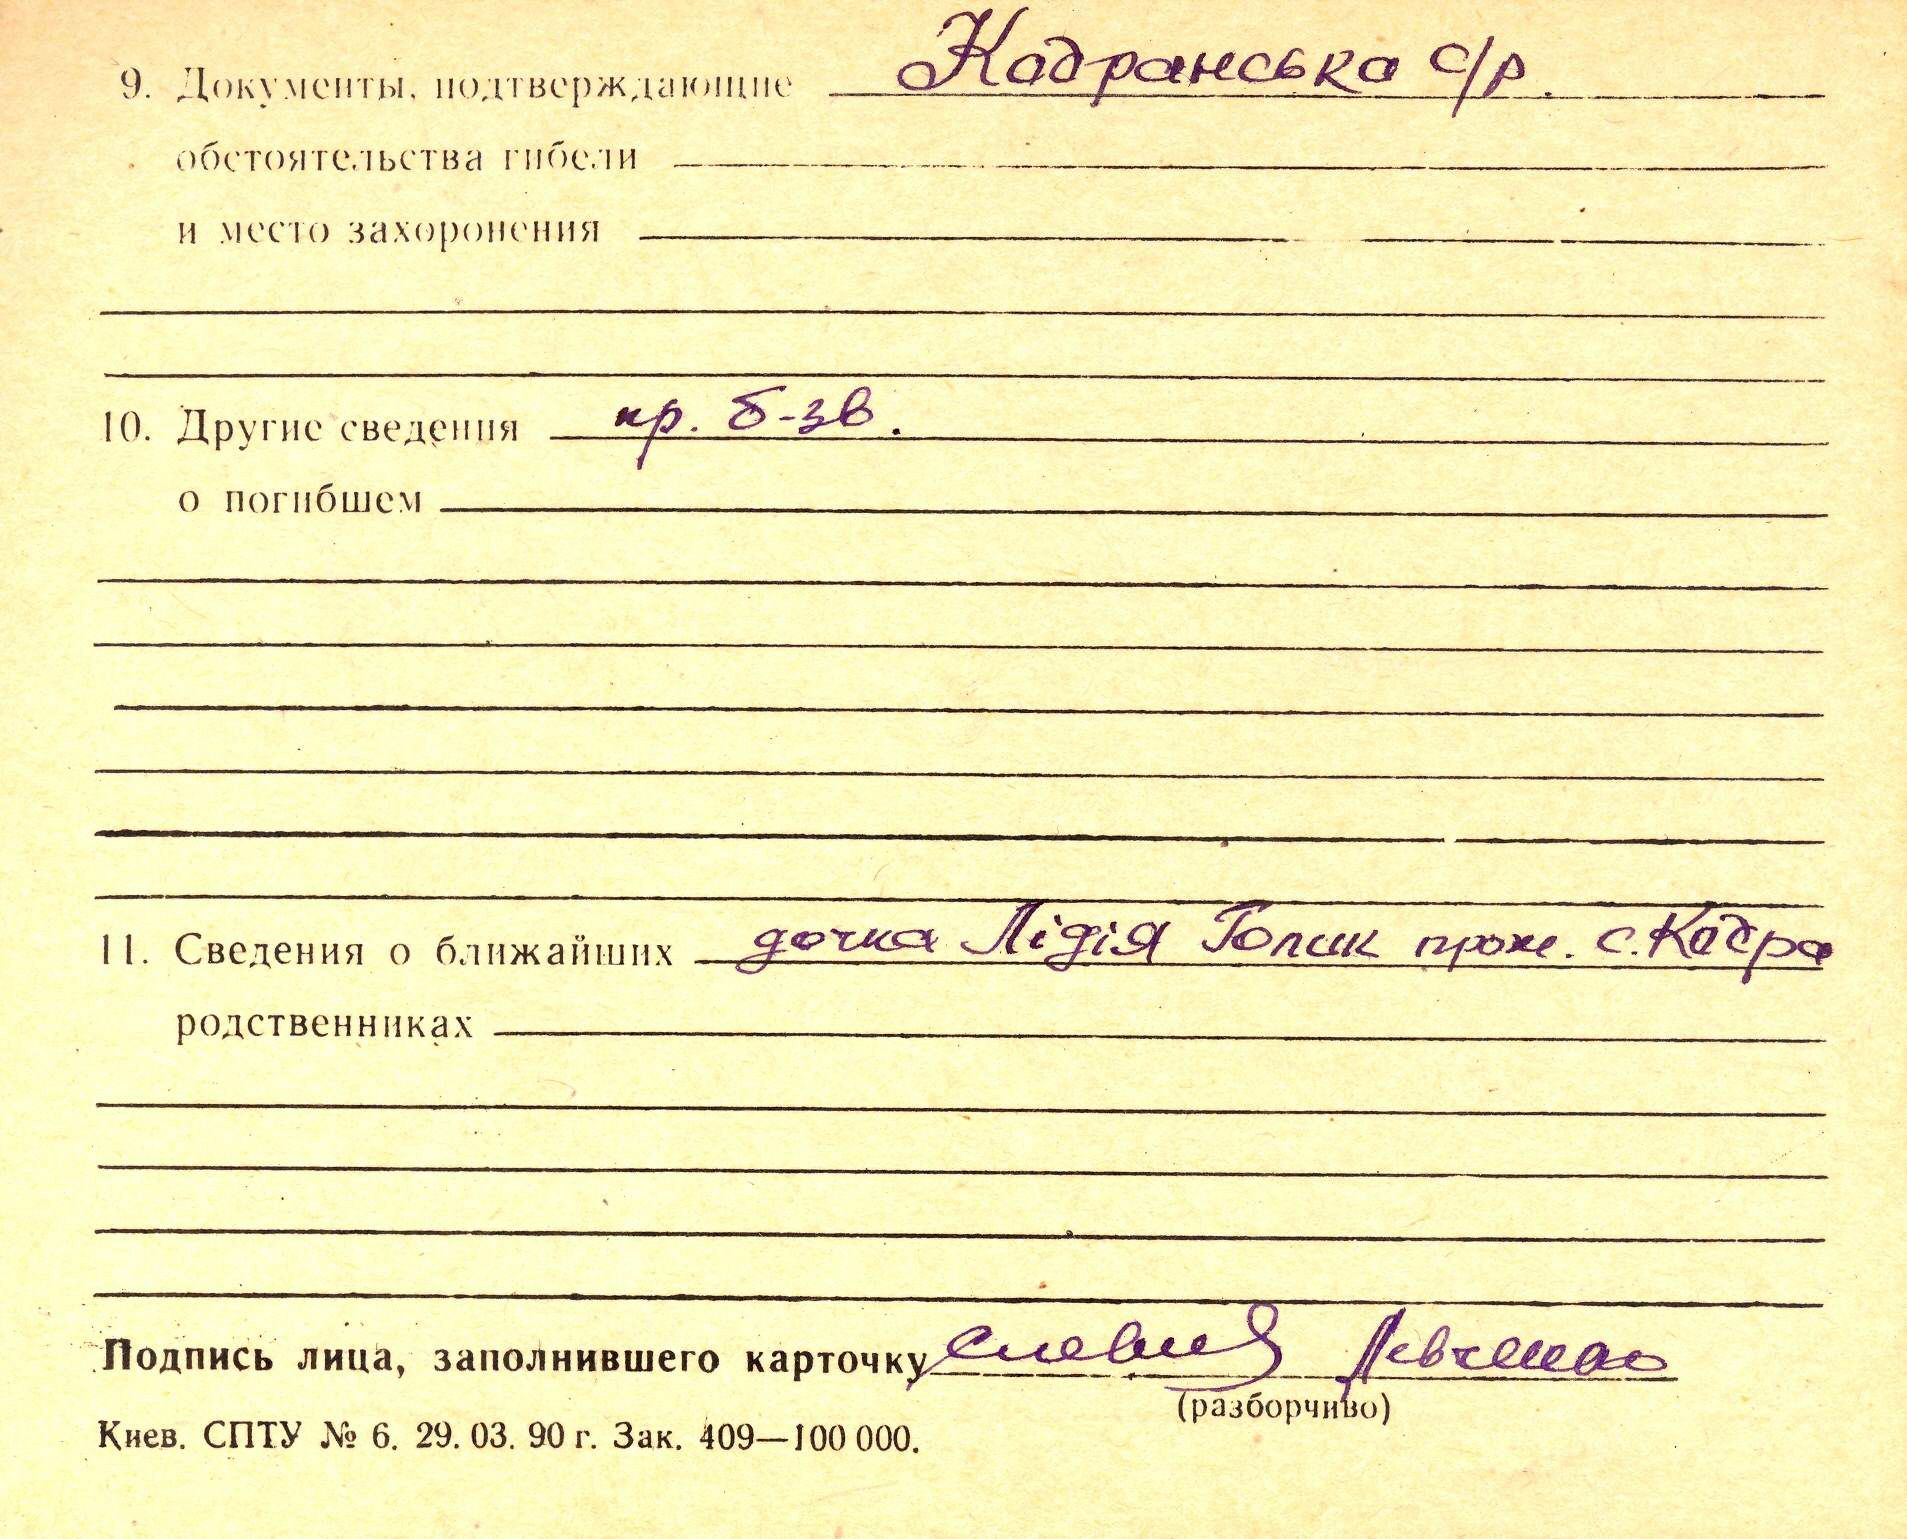 9. Документы, подтверждающие Кадранська с/р.
обстоятельства гибели
и место захоронения
10. Другие сведения пр. б-зв.
о погибшем
11. Сведения о ближайших дочка Лідія Голик прож. с. Кадра
родственниках
Подпись лица, заполнившего карточку Левченко
(разборчиво)
Киев. СПТУ № 6. 29. 03. 90 г. Зак. 409—100 000.